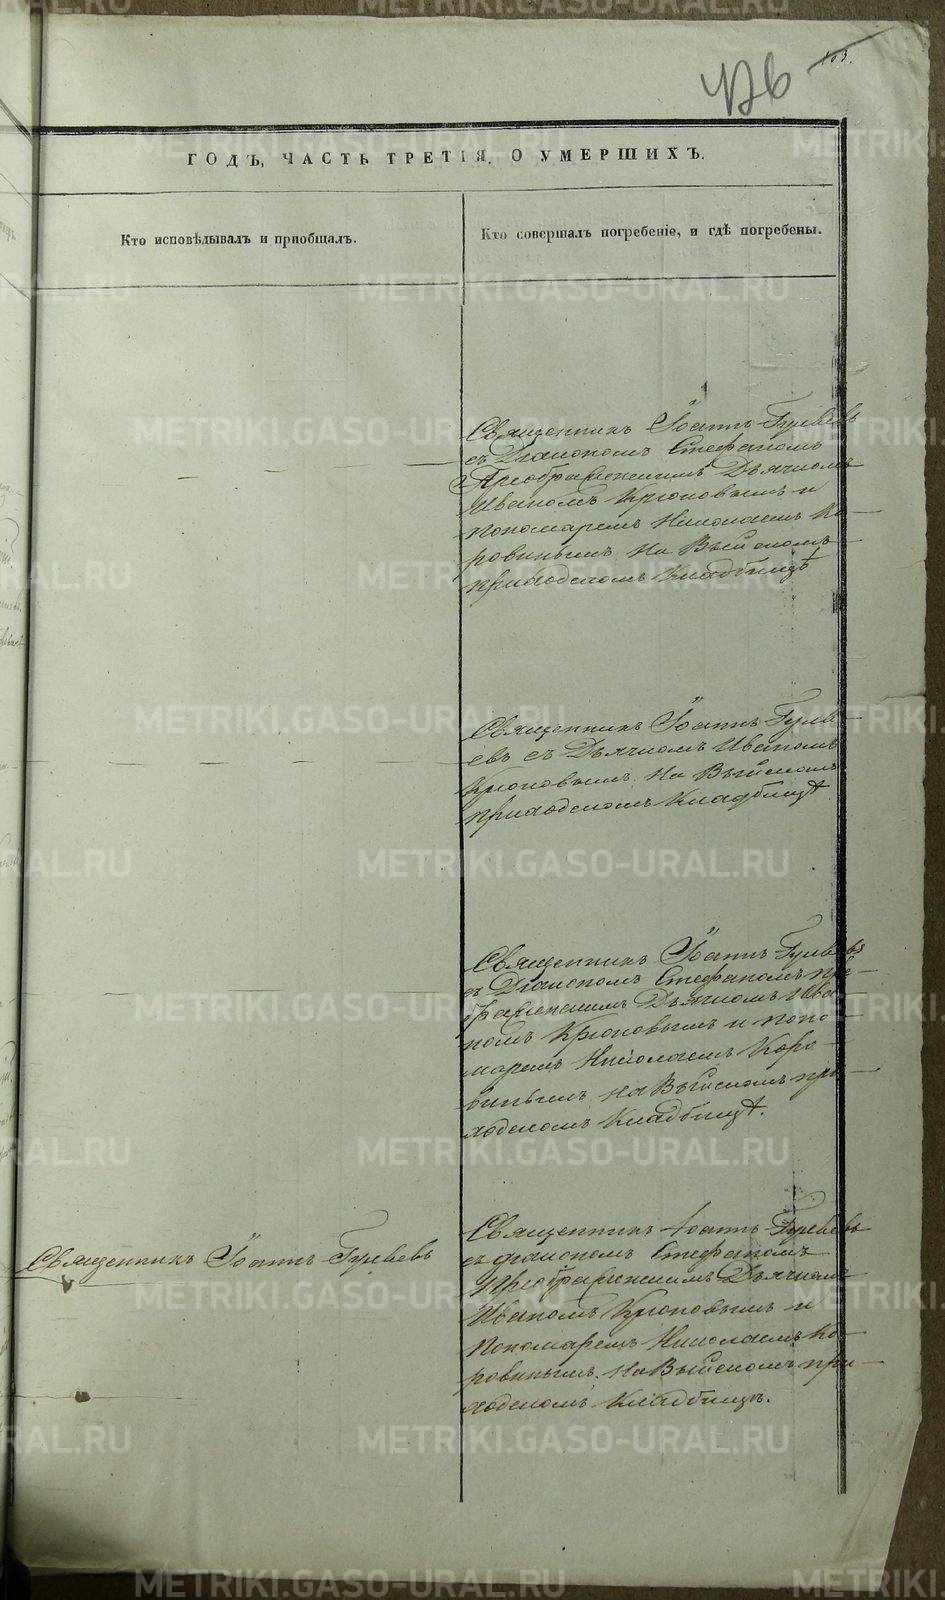 103.
426
ГОДЪ, ЧАСТЬ ТРЕТІЯ, О УМЕРШИХЪ.
Кто исповѣдывалъ и пріобщалъ.
Кто совершалъ погребеніе, и гдѣ погребены.
Священникъ Іоаннъ Гурьевъ
съ Діакономъ Стефаномъ
Преображенскимъ Дьячкомъ
Иваномъ Крюковымъ и
пономаремъ Николаемъ Ко-
ровинымъ на Выйскомъ
приходскомъ Кладбищѣ
Священникъ Іоаннъ Гурь-
евъ съ Дьячкомъ Иваномъ
Крюковымъ на Выйскомъ
приходскомъ Кладбищѣ
Священникъ Іоаннъ Гурьевъ
съ Діакономъ Стефаномъ Прео-
браженскимъ Дьячкомъ Ива-
номъ Крюковымъ и поно-
маремъ Николаемъ Коро-
винымъ на Выйскомъ при-
ходскомъ Кладбищѣ.
Священникъ Іоаннъ Гурьевъ
Священникъ Іоаннъ Гурьевъ
съ діакономъ Стефаномъ
Преображенскимъ Дьячкомъ
Иваномъ Крюковымъ и
Пономаремъ Николаемъ Ко-
ровинымъ на Выйскомъ при-
ходскомъ Кладбищѣ.
METRIKI.GASO-URAL.RU